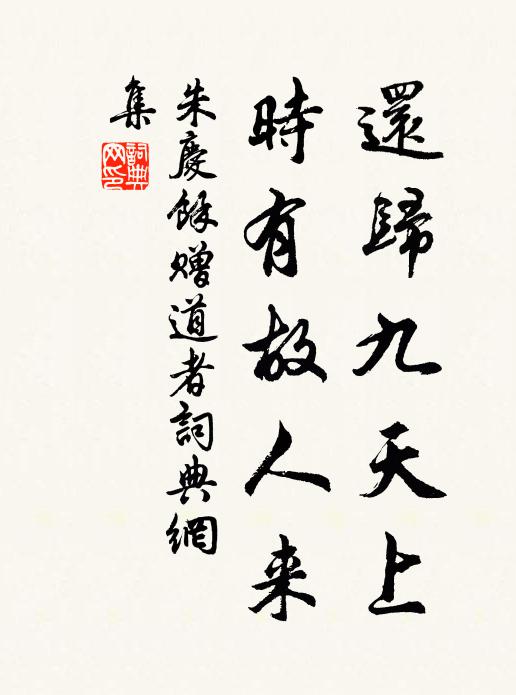 還歸九天上
時有故人来
朱慶餘贈道者詞典網
集
詞典网印